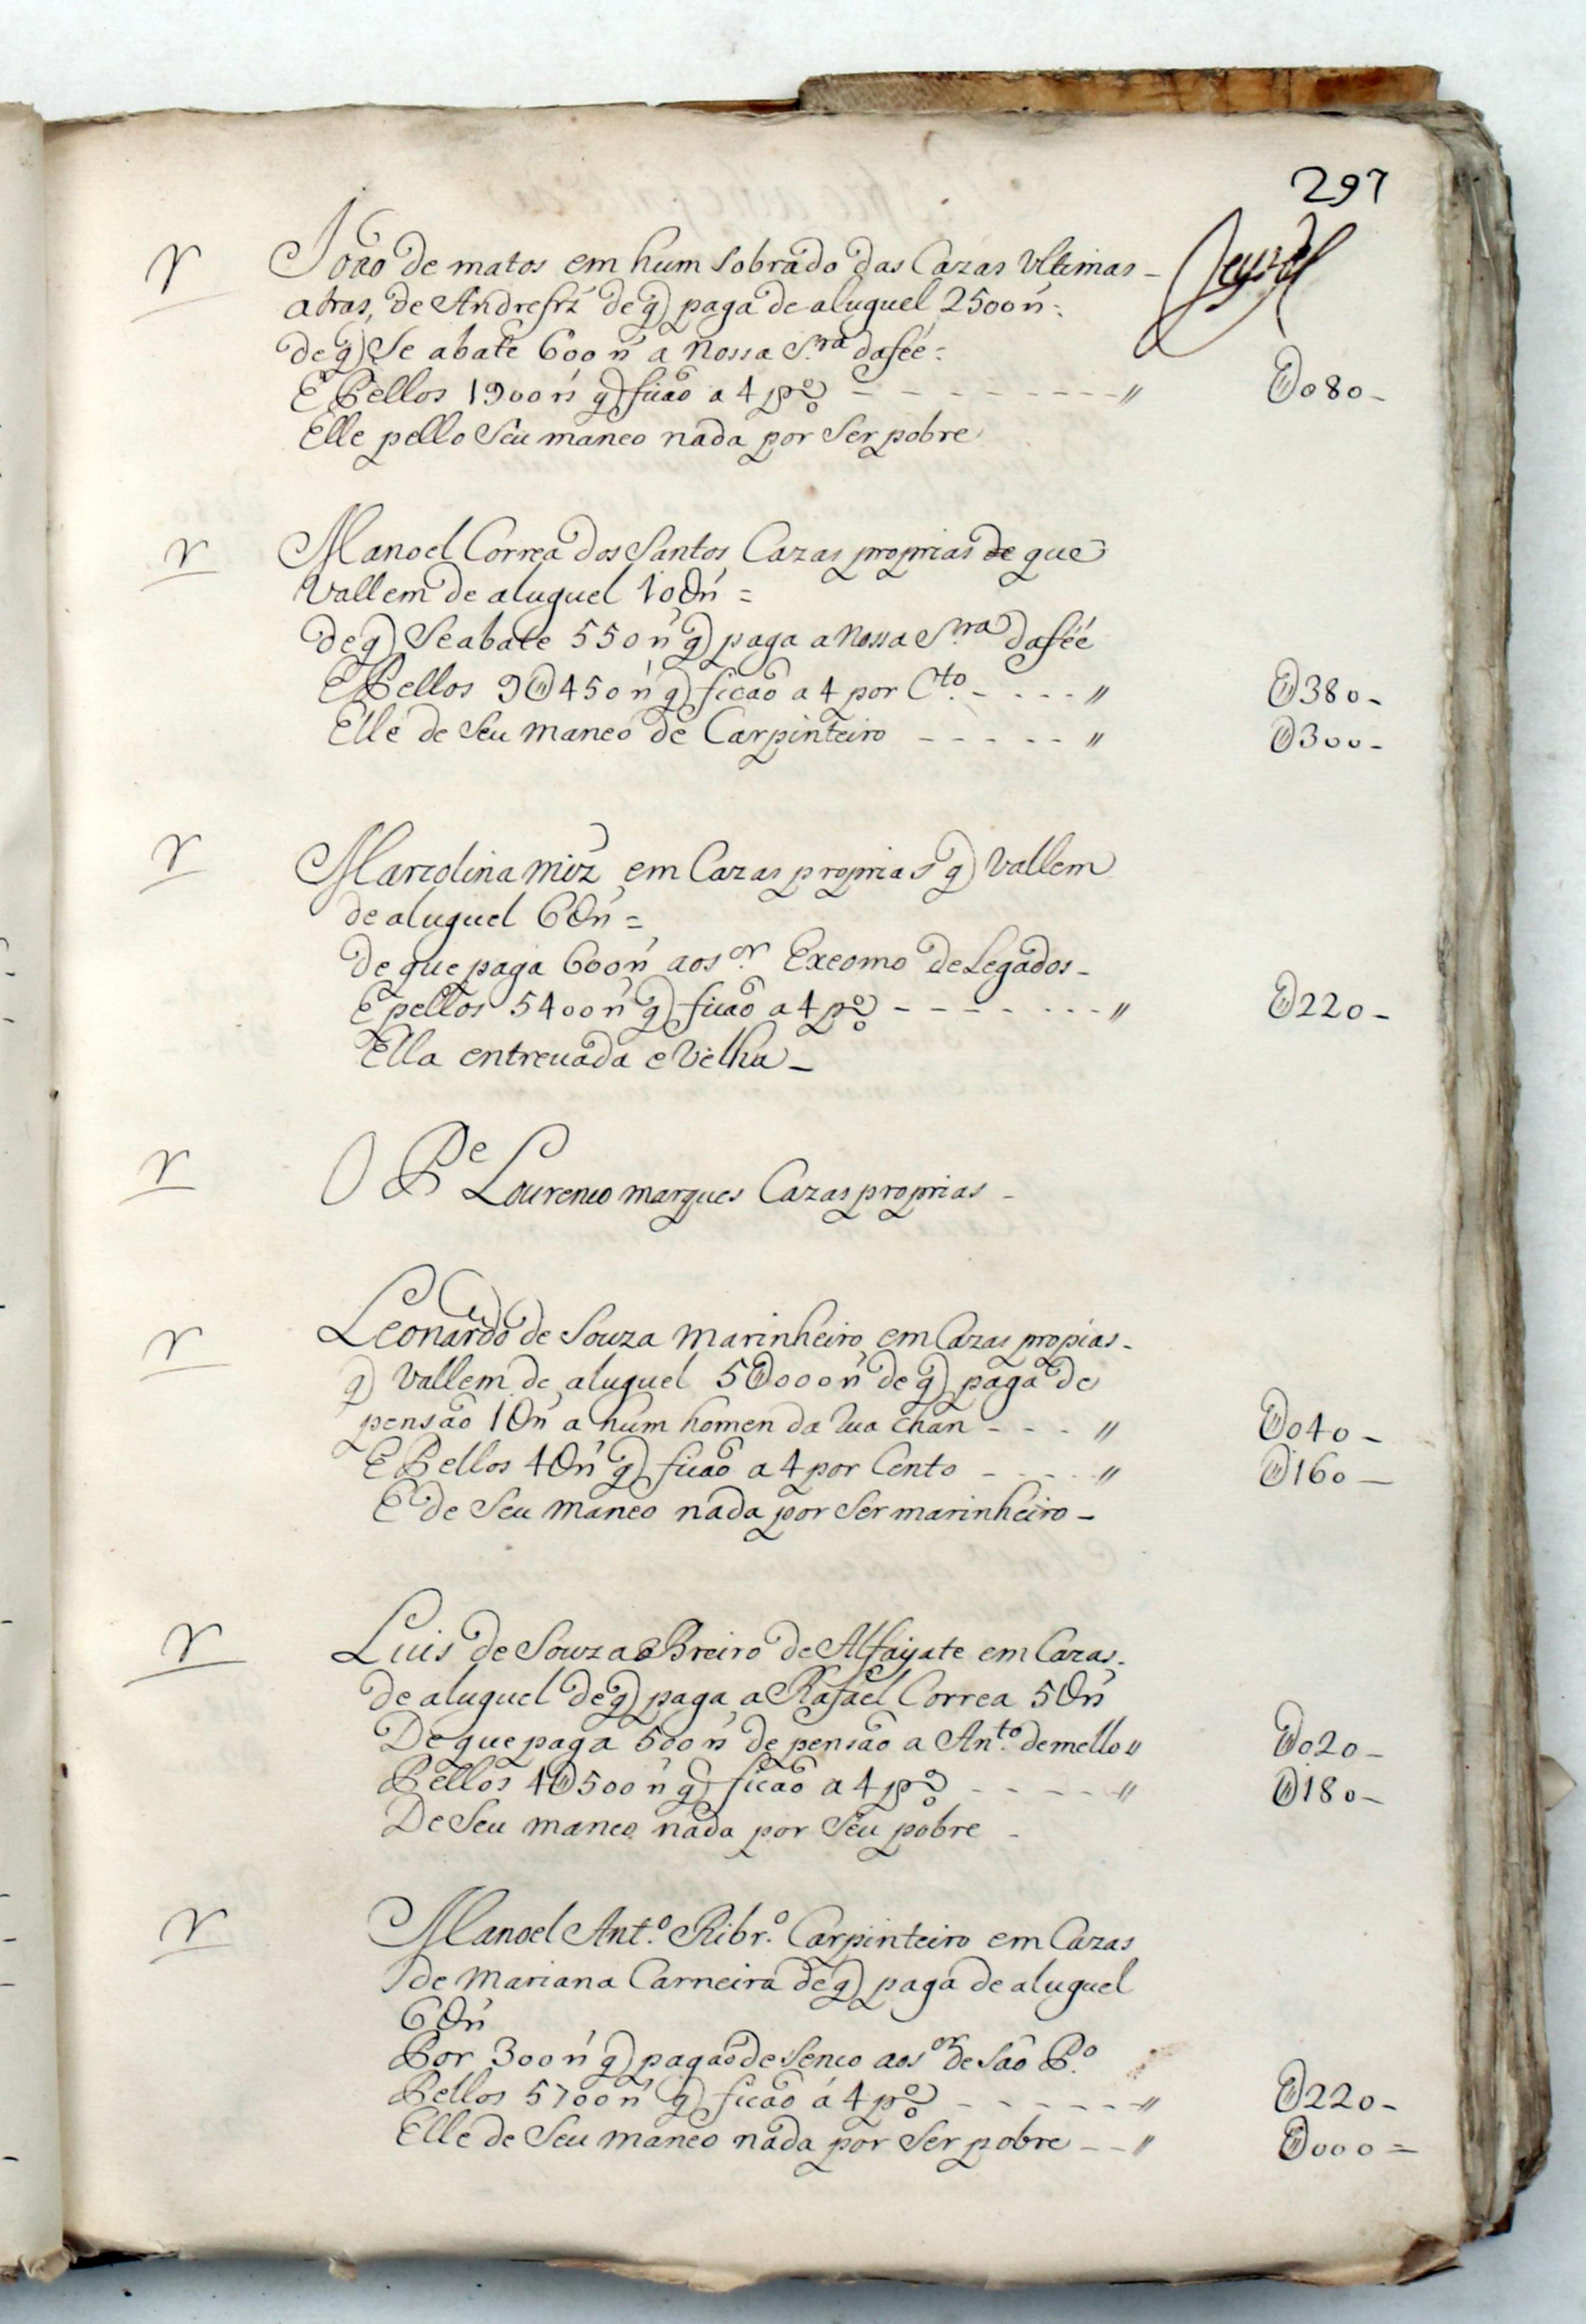 297
João de matos em hum sobrado das Cazas Vltimas -
atras, de Andre frz de q paga de aluguel 2500 rs.
de q Se abate 600 rs a Nossa Sra da feé =
E Pellos 1900 rs q ficaõ a 4 p% - - - - - - - - - // U080 -
Elle pello Seu maneo nada por Ser pobre
Manoel Correa dos Santos Cazas proprias de que
Vallem de aluguel 10U rs =
de q Se abate 550 rs q paga a Nossa Sra da feé
E Pellos 9U450 rs q ficaõ a 4 por Cto - - - - // U380 -
Elle de Seu maneo de Carpinteiro - - - - - // U300 -
Marcolina miz em Cazas proprias q Vallem
de aluguel 6U rs =
de que paga 600 rs ao sor Exeomo de Legados -
E pellos 5400 rs q ficaõ a 4 p% - - - - - - - // U220 -
Ella entreuada e Velha -
O Pe Lourenco marques Cazas proprias -
Leonardo de Souza marinheiro em Cazas propias -
q Vallem de aluguel 5U000 rs de q paga de
pensaõ 1U rs a hum homen da Rua chan - - - // U040 -
E Pellos 4U rs q ficaõ a 4 por Cento - - - - // U160 -
E de Seu maneo nada por Ser marinheiro -
Luis de Souza oBreiro de Alfayate em Cazas -
de aluguel de q paga a Rafael Correa 5U rs
De que paga 500 rs de pensaõ a Anto de mello // U020 -
Pellos 4U500 rs q ficaõ a 4 p% - - - - - // U180 -
De Seu maneo nada por Seu pobre -
Manoel Anto Ribro Carpinteiro em Cazas
de Mariana Carneira de q paga de aluguel
6U rs
Por 300 rs q pagaõ de Senco ao sor de Saõ Po
Pellos 5700 rs q ficaõ á 4 p% - - - - - - // U220 -
Elle de Seu maneo nada por Ser pobre - - // U000 =